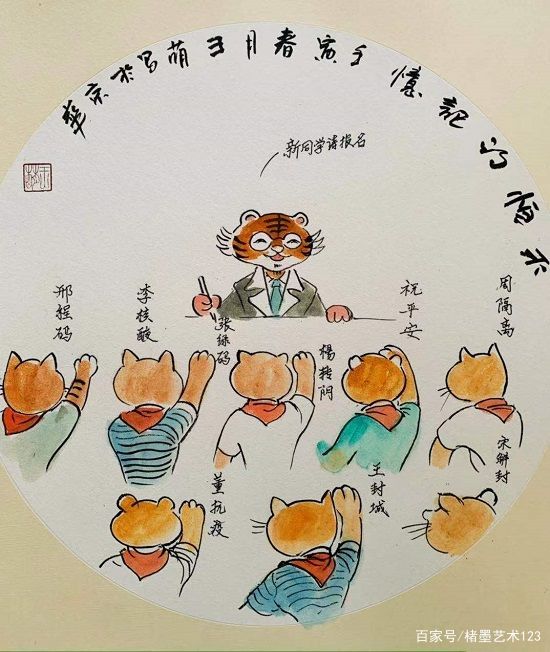 記憶壬寅春月王萌写於京華
新同学请报名
邢程码
李核酸
张绿码
楊转阴
祝平安
周隔离
董抗疫
王封城
宋解封
百家号/楮墨艺术123